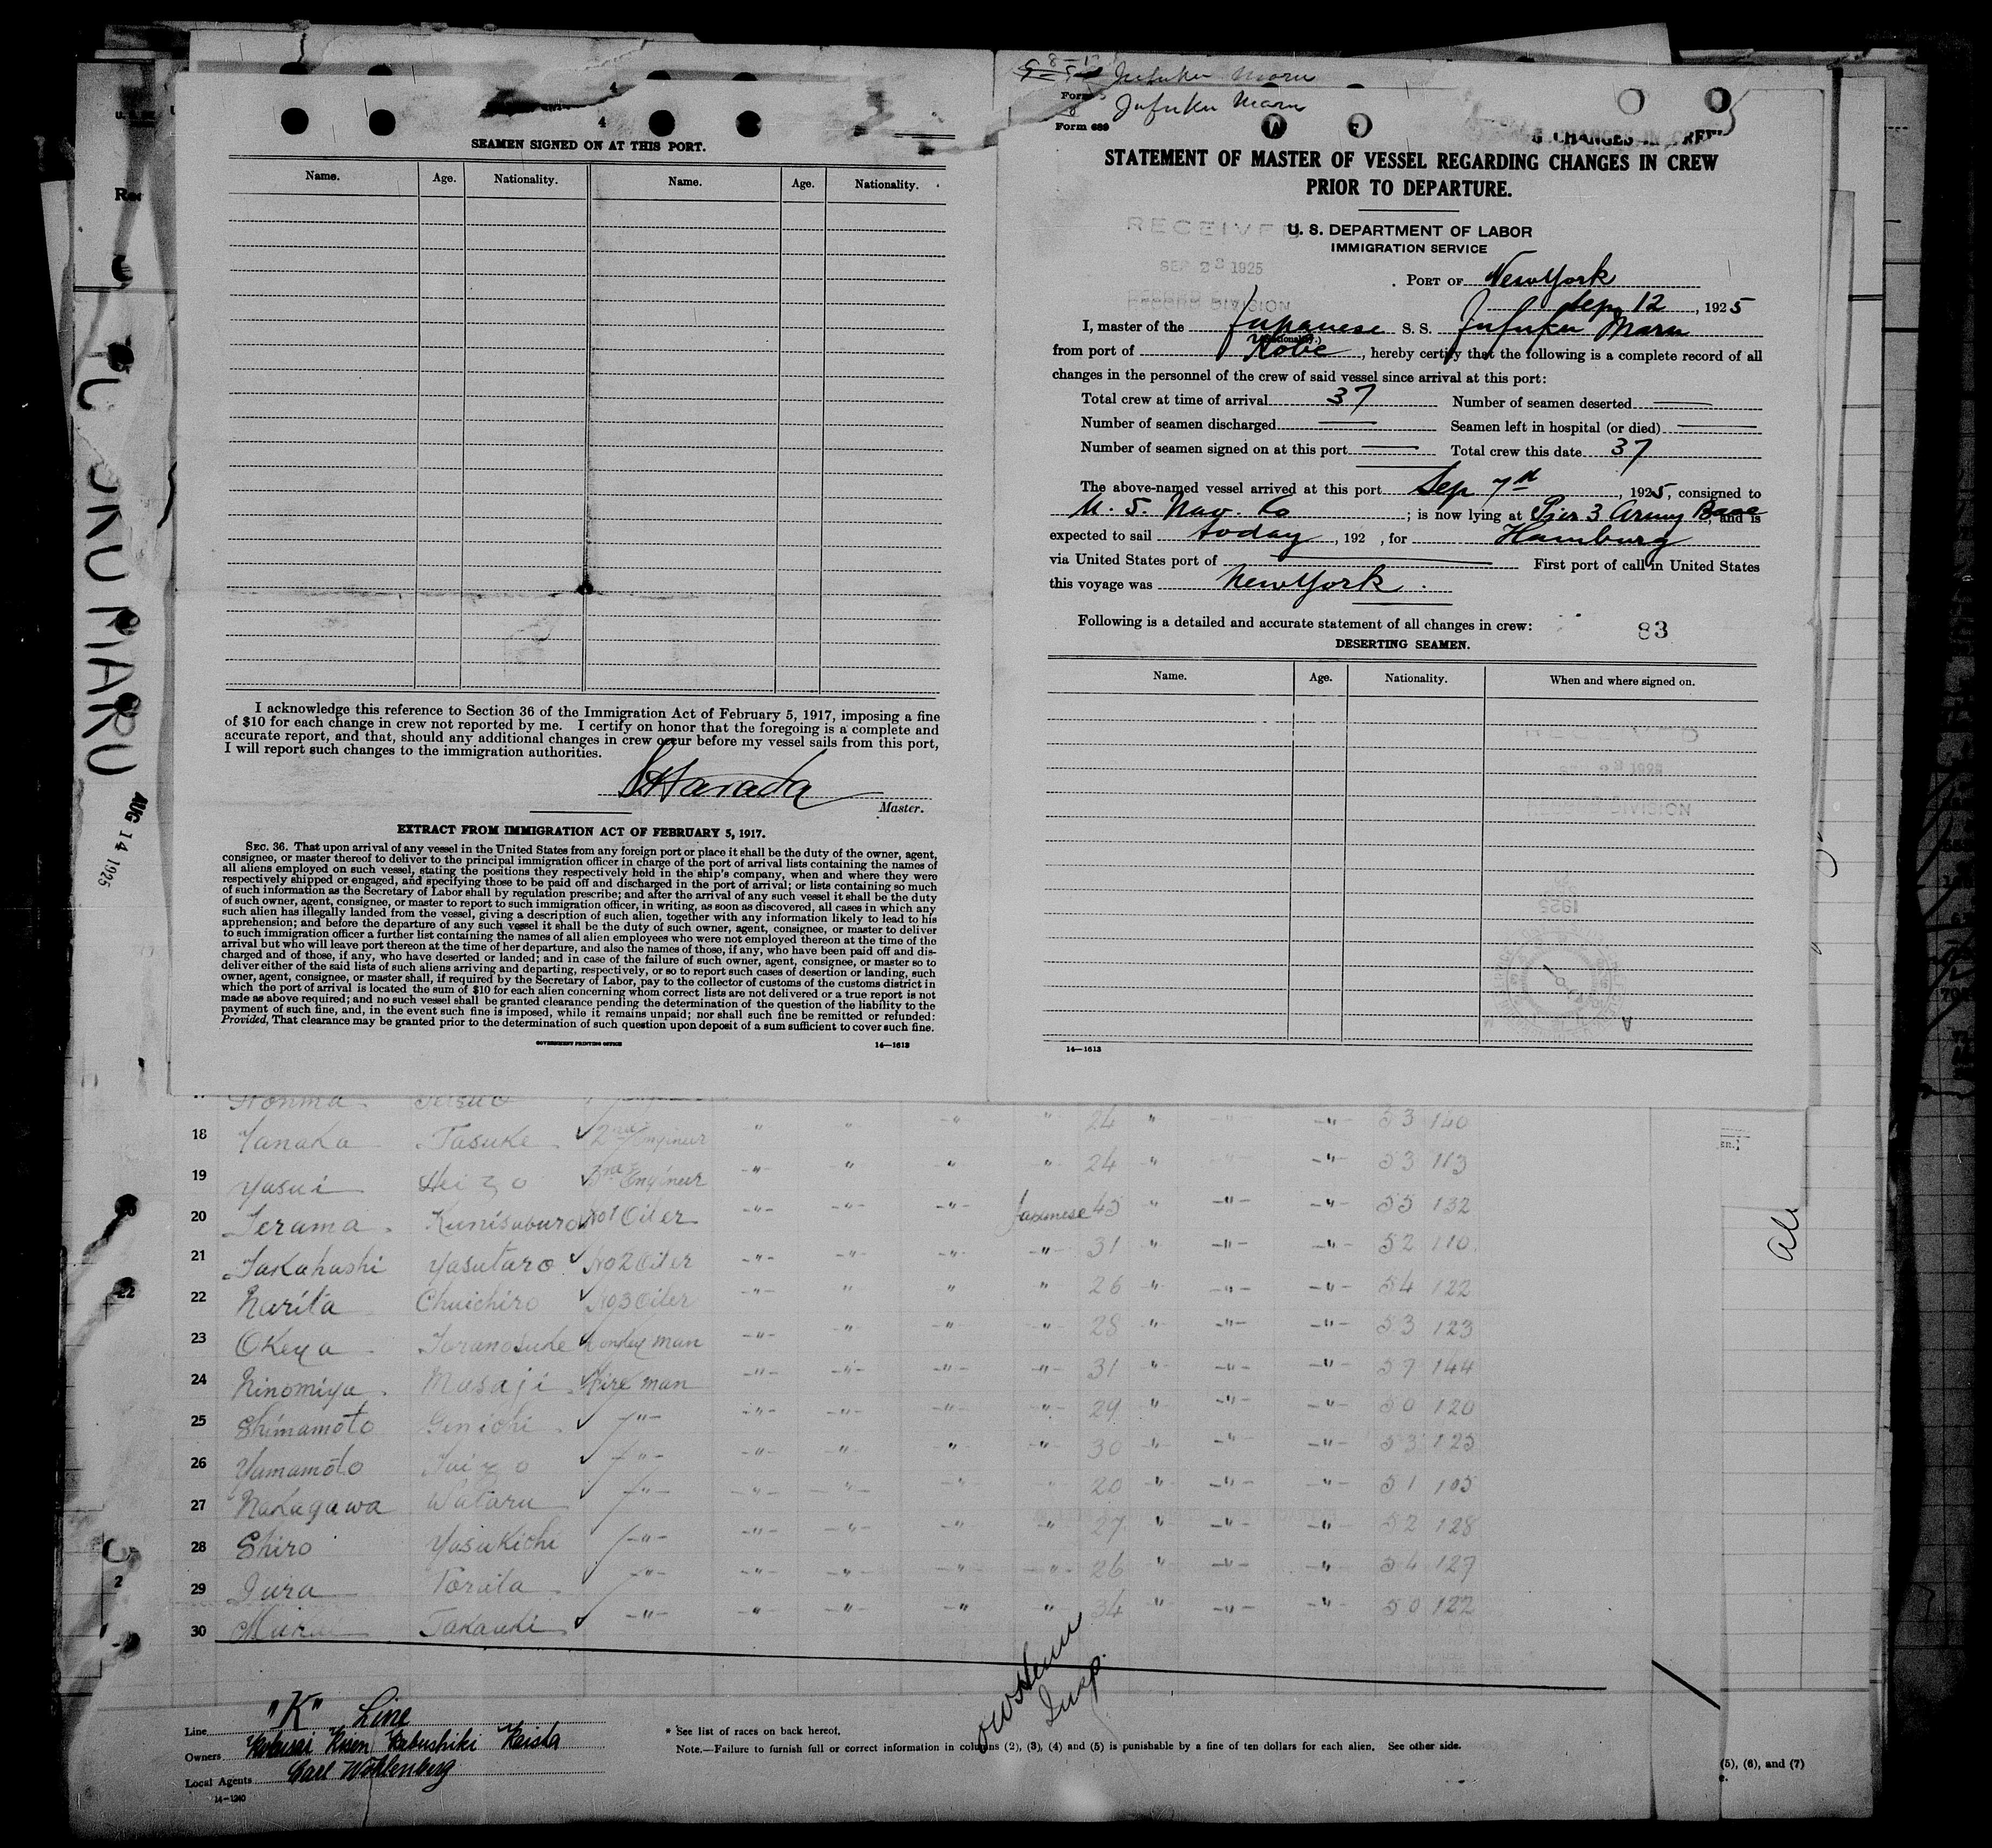 SEAMEN SIGNED ON AT THIS PORT.
Name. Age. Nationality. Name. Age. Nationality.
I acknowledge this reference to Section 36 of the Immigration Act of February 5, 1917, imposing a fine
of $10 for each change in crew not reported by me. I certify on honor that the foregoing is a complete and
accurate report, and that, should any additional changes in crew occur before my vessel sails from this port,
I will report such changes to the immigration authorities.
Harada
Master.
EXTRACT FROM IMMIGRATION ACT OF FEBRUARY 5, 1917.
SEC. 36. That upon arrival of any vessel in the United States from any foreign port or place it shall be the duty of the owner, agent,
consignee, or master thereof to deliver to the principal immigration officer in charge of the port of arrival lists containing the names of
all aliens employed on such vessel, stating the positions they respectively hold in the ship's company, when and where they were
respectively shipped or engaged, and specifying those to be paid off and discharged in the port of arrival; or lists containing so much
of such information as the Secretary of Labor shall by regulation prescribe; and after the arrival of any such vessel it shall be the duty
of such owner, agent, consignee, or master to report to such immigration officer, in writing, as soon as discovered, all cases in which any
such alien has illegally landed from the vessel, giving a description of such alien, together with any information likely to lead to his
apprehension; and before the departure of any such vessel it shall be the duty of such owner, agent, consignee, or master to deliver
to such immigration officer a further list containing the names of all alien employees who were not employed thereon at the time of the
arrival but who will leave port thereon at the time of her departure, and also the names of those, if any, who have been paid off and dis-
charged and of those, if any, who have deserted or landed; and in case of the failure of such owner, agent, consignee, or master so to
deliver either of the said lists of such aliens arriving and departing, respectively, or so to report such cases of desertion or landing, such
owner, agent, consignee, or master shall, if required by the Secretary of Labor, pay to the collector of customs of the customs district in
which the port of arrival is located the sum of $10 for each alien concerning whom correct lists are not delivered or a true report is not
made as above required; and no such vessel shall be granted clearance pending the determination of the question of the liability to the
payment of such fine, and, in the event such fine is imposed, while it remains unpaid; nor shall such fine be remitted or refunded:
Provided, That clearance may be granted prior to the determination of such question upon deposit of a sum sufficient to cover such fine.
GOVERNMENT PRINTING OFFICE 14—1613
Jufuku Maru
Form Jufuku Maru
Form 689
STATEMENT OF MASTER OF VESSEL REGARDING CHANGES IN CREW
PRIOR TO DEPARTURE.
RECEIVED
U. S. DEPARTMENT OF LABOR
IMMIGRATION SERVICE
SEP 23 1925
DIVISION
PORT OF New York
Sep 12, 1925
I, master of the Japanese S. S. Jufuku Maru
(Nationality.)
from port of Kobe, hereby certify that the following is a complete record of all
changes in the personnel of the crew of said vessel since arrival at this port:
Total crew at time of arrival 37 Number of seamen deserted —
Number of seamen discharged — Seamen left in hospital (or died) —
Number of seamen signed on at this port — Total crew this date 37
The above-named vessel arrived at this port Sep 7th, 1925, consigned to
U. S. Nav. Co; is now lying at Pier 3 Army Base, and is
expected to sail today, 192 , for Hamburg
via United States port of — First port of call in United States
this voyage was New York.
Following is a detailed and accurate statement of all changes in crew:
83
DESERTING SEAMEN.
Name. Age. Nationality. When and where signed on.
14—1613
FUKU MARU
AUG 14 1925
Honma Yasuo
18 Tanaka Tasuke 2nd Engineer -"- " -"- " 24 " -"- -"- 53 140
19 Yasui Heizo 3rd Engineer -"- " " " 24 " -"- -"- 53 113
20 Terama Kunisaburo No1 Oiler -"- -"- -"- Japanese 45 " -"- -"- 55 132
21 Takahashi Yasutaro No2 Oiler -"- -"- -"- -"- 31 " -"- -"- 52 110
22 Narita Chuichiro No3 Oiler -"- " " " 26 -"- -"- -"- 54 122
23 Okeya Toranosuke Donkey man -"- " -"- -"- 28 " -"- -"- 53 123
24 Ninomiya Masaji Fire man -"- -"- -"- -"- 31 " -"- -"- 57 144
25 Shimamoto Genichi -"- -"- -"- -"- " 29 " -"- -"- 50 120
26 Yamamoto Taizo -"- -"- -"- " -"- 30 " -"- -"- 53 125
27 Nakagawa Wataru -"- -"- -"- -"- " 20 " -"- -"- 51 105
28 Shiro Yasukichi -"- -"- -"- " -"- 27 " -"- -"- 52 128
29 Iura Torata -"- -"- -"- -"- -"- 26 " -"- -"- 54 127
30 Takauki -"- -"- -"- -"- " 34 " -"- -"- 50 122
Insp.
Line "K" Line
Owners Kokusai Kisen Kabushiki Kaisha
Local Agents Carl Wohlenberg
14—1240
* See list of races on back hereof.
Note.—Failure to furnish full or correct information in columns (2), (3), (4) and (5) is punishable by a fine of ten dollars for each alien. See other side.
(5), (6), and (7)